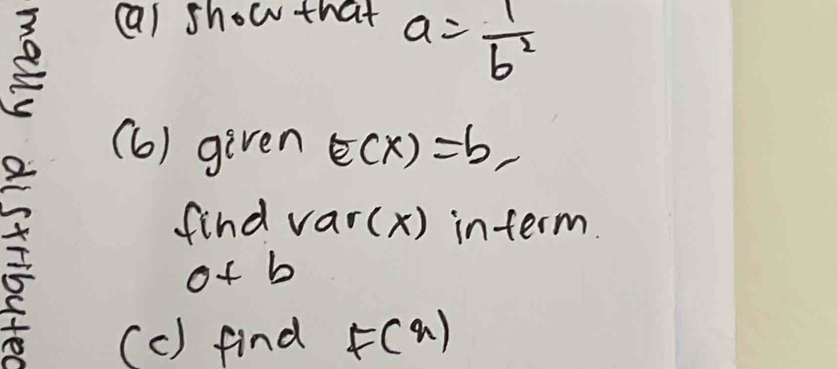 (a) show that a = 1/b²
(b) given E(X) = b,
find var(x) in term.
of b
(c) find F(x)
mally distributed